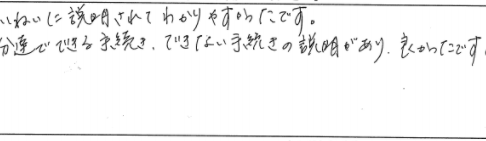 いねいに説明されてわかりやすかったです。
分達でできる手続き、できない手続きの説明があり、良かったです。